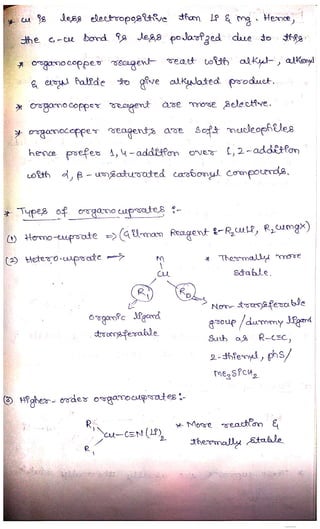 * Cu is less electropositive than Li & Mg. Hence,
the C-Cu bond is less polarized due to this.
* organocopper reagent react with alkyl-, alkenyl
& aryl halide to give alkylated product.
* organocopper reagent are more selective.
* organocopper reagents are soft nucleophiles
hence prefer 1,4-addition over 1,2-addition
with α,β-unsaturated carbonyl compounds.
* Types of organocuprates :-
(1) Homo-cuprate => (Gilman Reagent :- R2CuLi, R2CuMgX)
(2) Hetero-cuprate →
M
Cu
R1 R2
* Thermally more
stable.
organic ligand
transferable
Non-transferable
group/dummy ligand
such as R-C≡C,
2-thienyl, PhS/
Me3SiCH2
(3) Higher-order organocuprates :-
R
Cu-C≡N(Li)2
R
* More reaction &
thermally stable